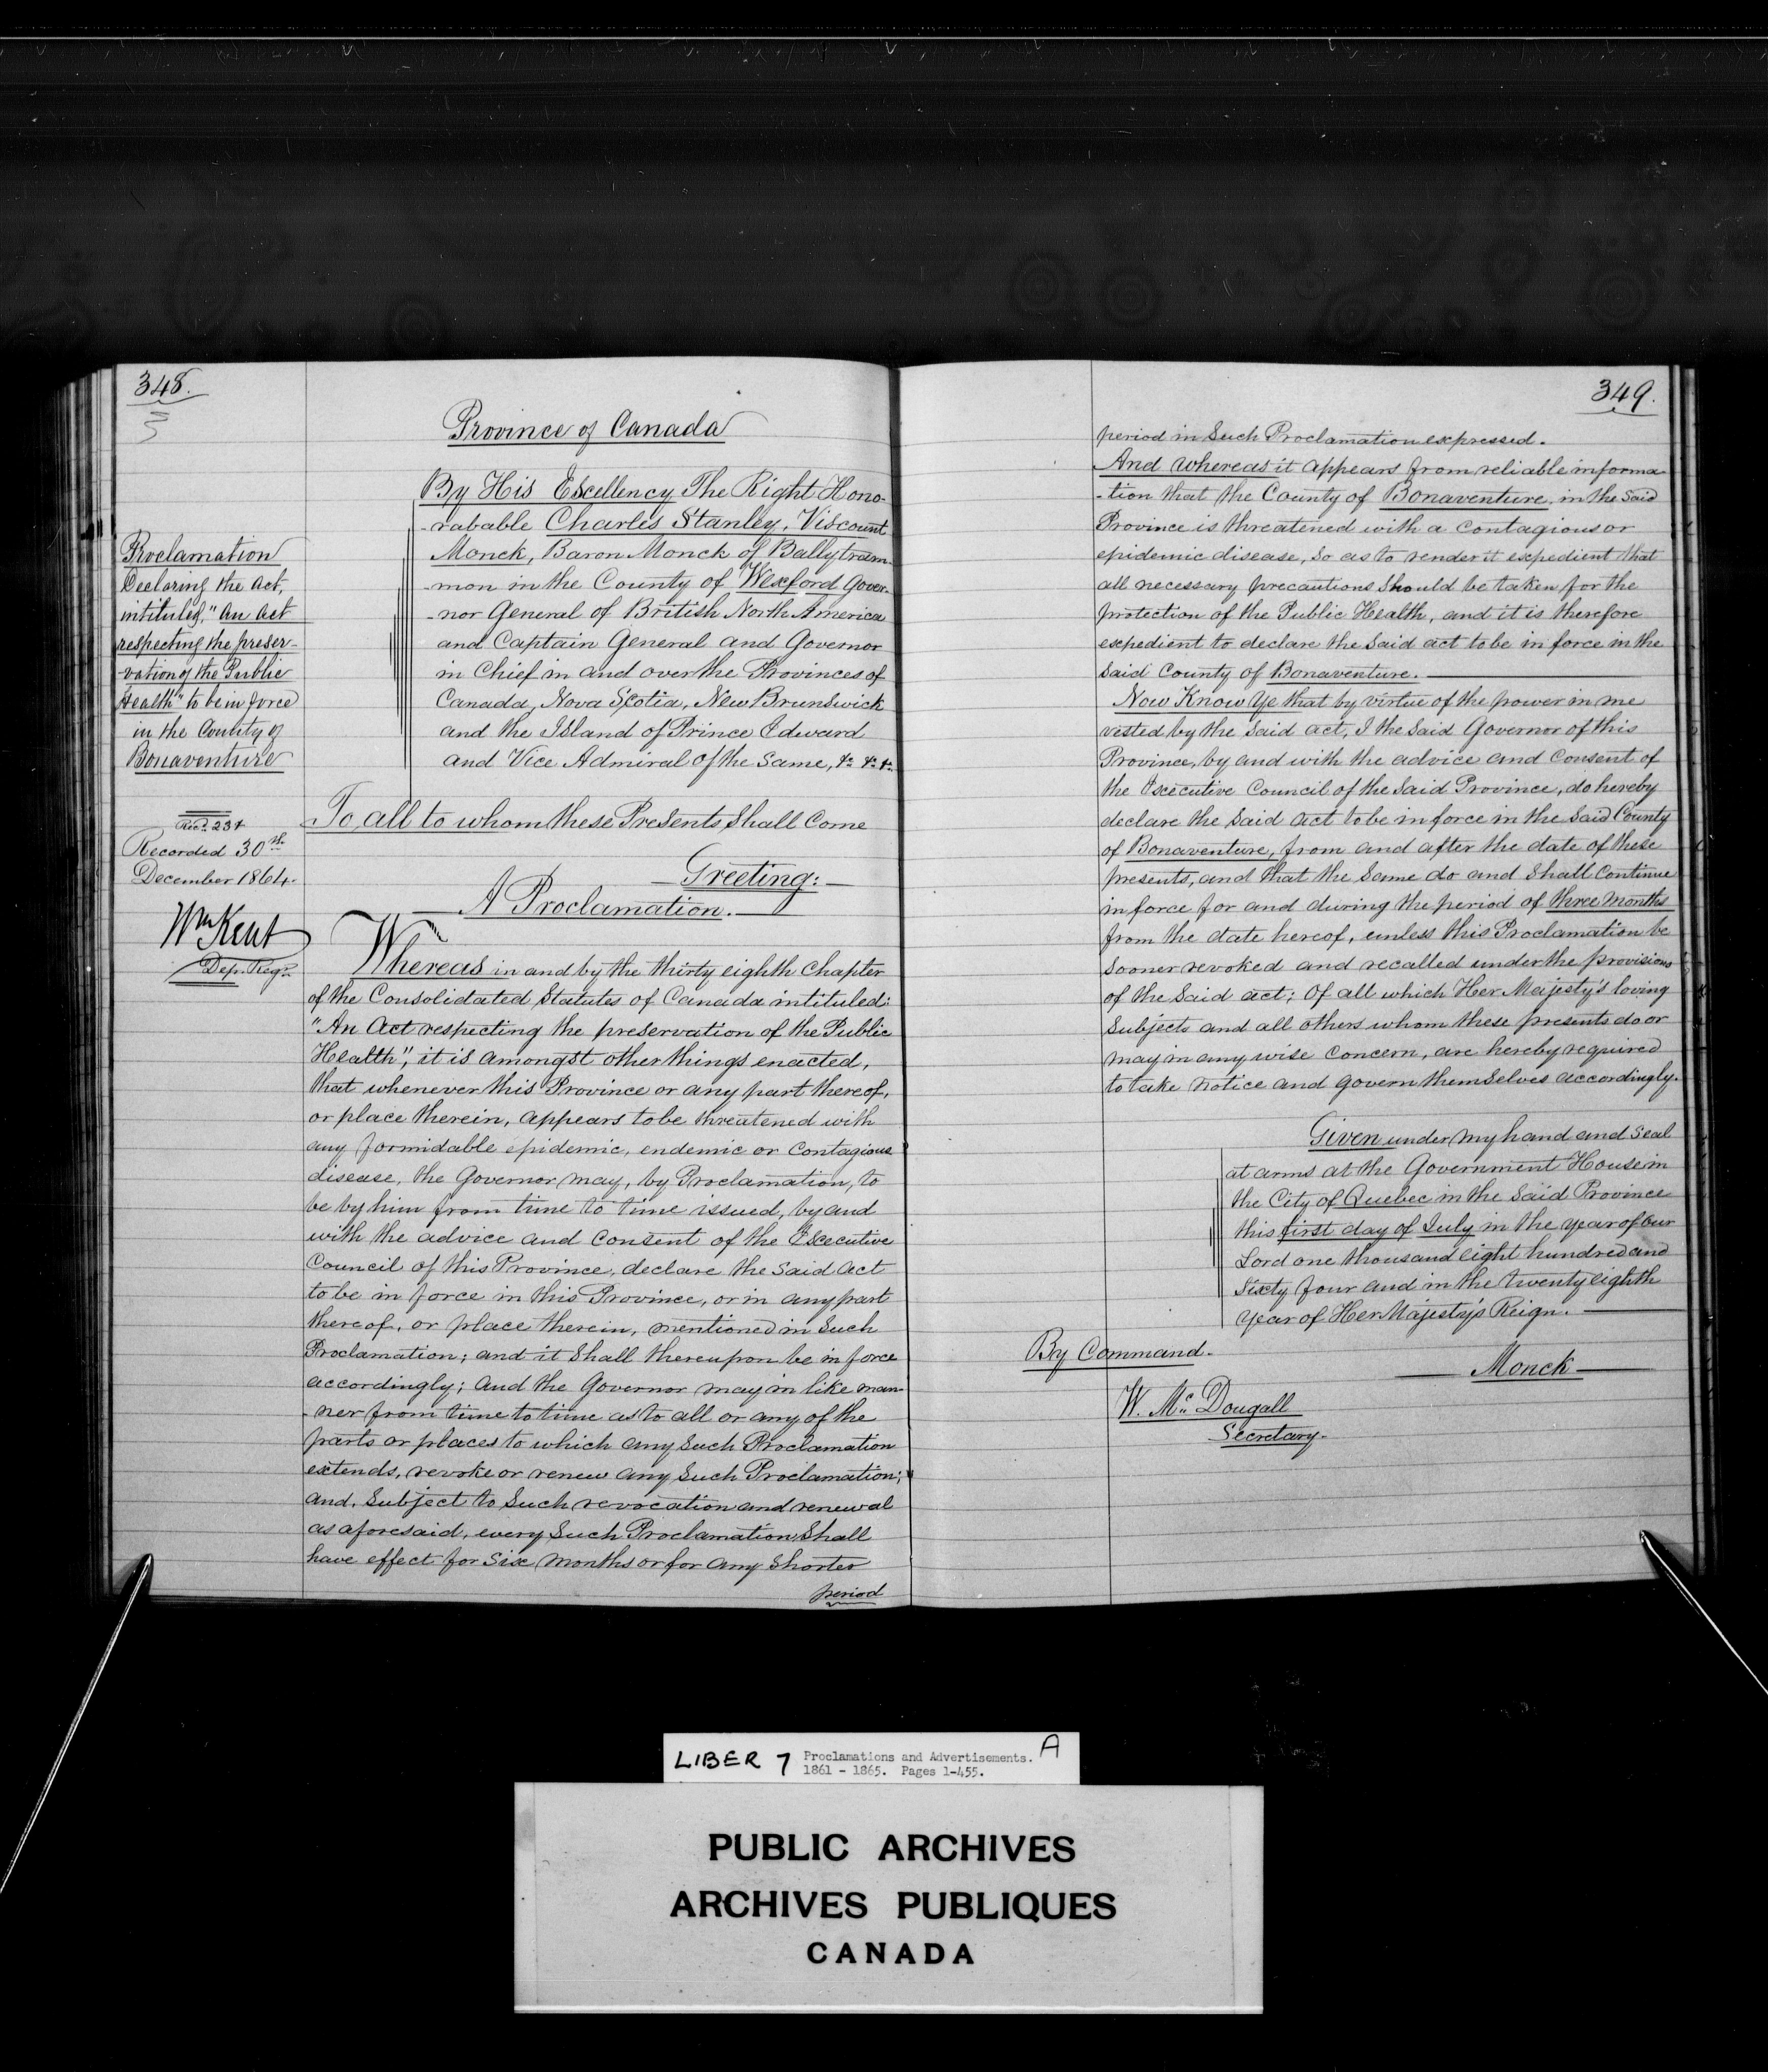 348.
Province of Canada
By His Excellency The Right Hono-
-rabable Charles Stanley, Viscount
Monck, Baron Monck of Ballytram-
-mon in the County of Wexford Gover-
-nor General of British North America
and Captain General and Governor
in Chief in and over the Provinces of
Canada, Nova Scotia, New Brunswick
and the Island of Prince Edward
and Vice Admiral of the Same, &c &c &c
Proclamation
Declaring the Act,
intituled, "An Act
respecting the preser-
-vation of the Public
Health" to be in force
in the County of
Bonaventure
Recorded 30th
December 1864.
Wm Kent
Dep. Regr.
To all to whom these Presents Shall Come
Greeting:
A Proclamation.
Whereas in and by the thirty eighth Chapter
of the Consolidated Statutes of Canada intituled:
"An Act respecting the preservation of the Public
Health", it is amongst other things enacted,
that whenever this Province or any part thereof,
or place therein, appears to be threatened with
any formidable epidemic, endemic or contagious
disease, the Governor may, by Proclamation, to
be by him from time to time issued, by and
with the advice and consent of the Executive
Council of this Province, declare the Said Act
to be in force in this Province, or in any part
thereof, or place therein, mentioned in Such
Proclamation; and it Shall thereupon be in force
accordingly; and the Governor may in like man-
-ner from time to time as to all or any of the
parts or places to which any Such Proclamation
extends, revoke or renew any Such Proclamation;
and, Subject to Such revocation and renewal
as aforesaid, every Such Proclamation Shall
have effect for Six Months or for any Shorter
period
349.
period in Such Proclamation expressed.
And whereas it appears from reliable informa-
-tion that the County of Bonaventure, in the Said
Province is threatened with a contagious or
epidemic disease, So as to render it expedient that
all necessary precautions Should be taken for the
protection of the Public Health, and it is therefore
expedient to declare the Said act to be in force in the
Said County of Bonaventure.
Now Know Ye that by virtue of the power in me
vested by the Said Act, I the Said Governor of this
Province, by and with the advice and consent of
the Executive Council of the Said Province, do hereby
declare the Said act to be in force in the Said County
of Bonaventure, from and after the date of these
presents, and that the Same do and Shall Continue
in force for and during the period of three Months
from the date hereof, unless this Proclamation be
Sooner revoked and recalled under the provisions
of the Said act; Of all which Her Majesty's loving
Subjects and all others whom these presents do or
may in any wise Concern, are hereby required
to take notice and govern themselves accordingly.
Given under my hand and Seal
at arms at the Government House in
the City of Quebec in the Said Province
this first day of July in the year of Our
Lord one thousand eight hundred and
Sixty four and in the twenty eighth
Year of Her Majesty's Reign.
By Command.
Monck
W. Mc Dougall
Secretary.
LIBER 7 Proclamations and Advertisements. A
1861 - 1865. Pages 1-455.
PUBLIC ARCHIVES
ARCHIVES PUBLIQUES
CANADA